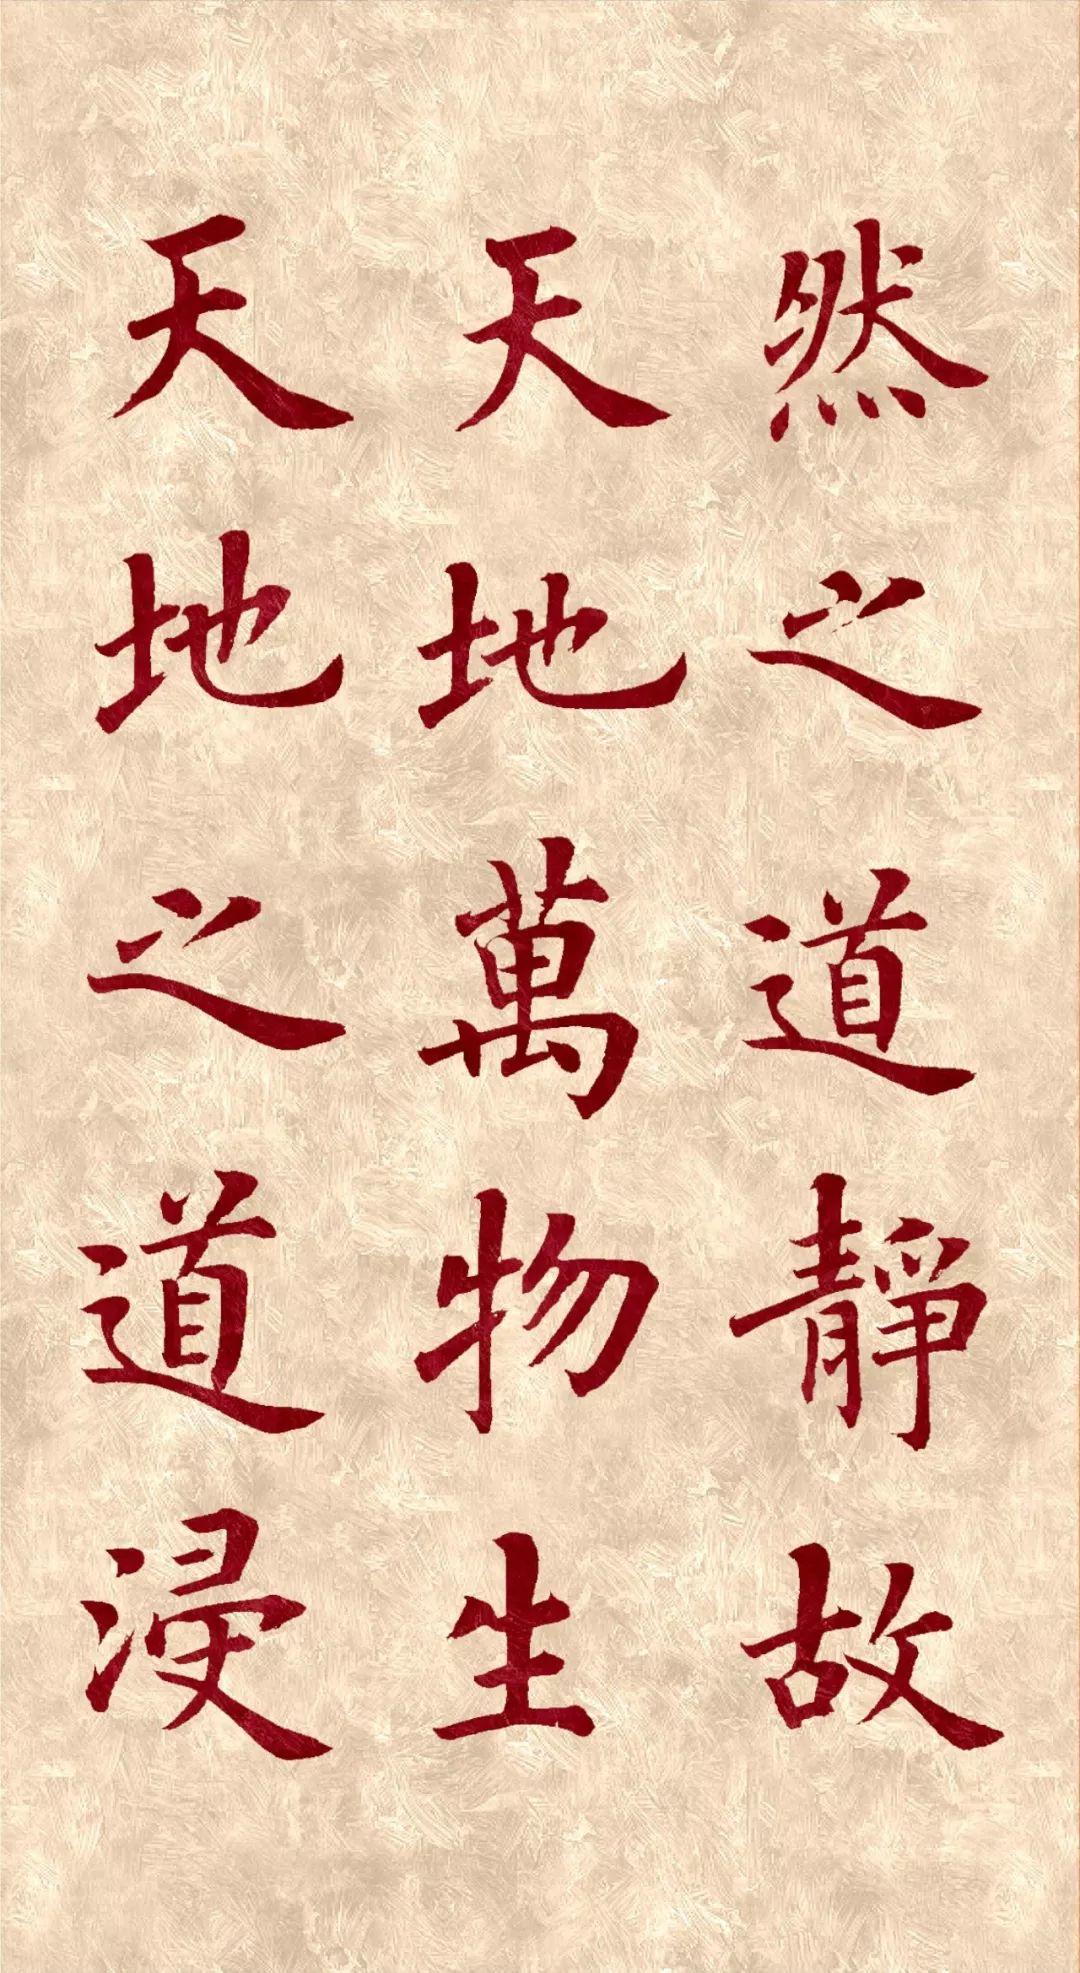 然之道靜故
天地萬物生
天地之道浸